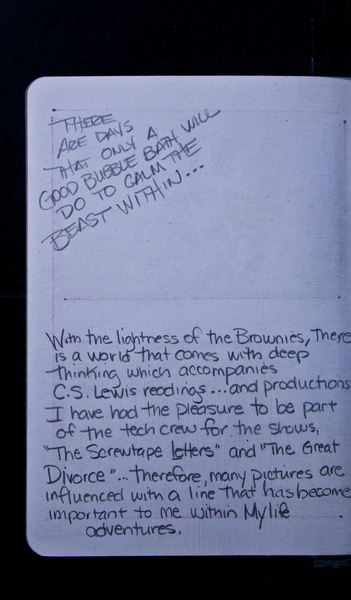 THERE
ARE DAYS
THAT ONLY A
GOOD BUBBLE BATH WILL
DO TO CALM THE
BEAST WITHIN...
With the lightness of the Brownies, There
is a world that comes with deep
thinking which accompanies
C.S. Lewis readings...and productions
I have had the pleasure to be part
of the tech crew for the shows,
"The Screwtape letters" and "The Great
Divorce"... therefore, many pictures are
influenced with a line that has become
important to me within My life
adventures.